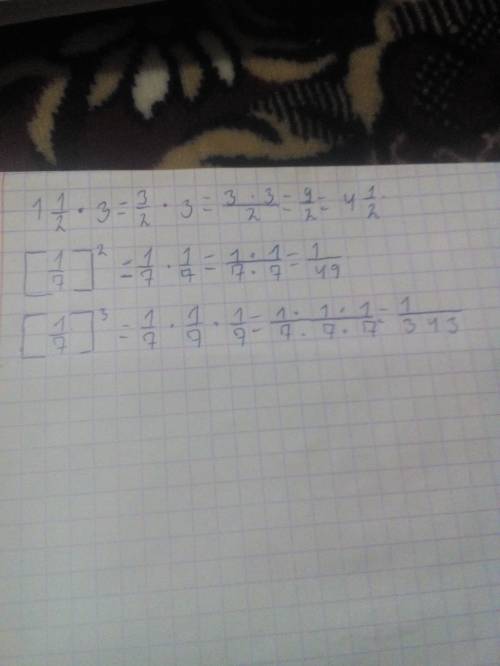 1 1/2 · 3 = 3/2 · 3 = 3 · 3/2 = 9/2 = 4 1/2
[1/7]² = 1/7 · 1/7 = 1 · 1/7 · 7 = 1/49
[1/7]³ = 1/7 · 1/7 · 1/7 = 1 · 1 · 1/7 · 7 · 7 = 1/343